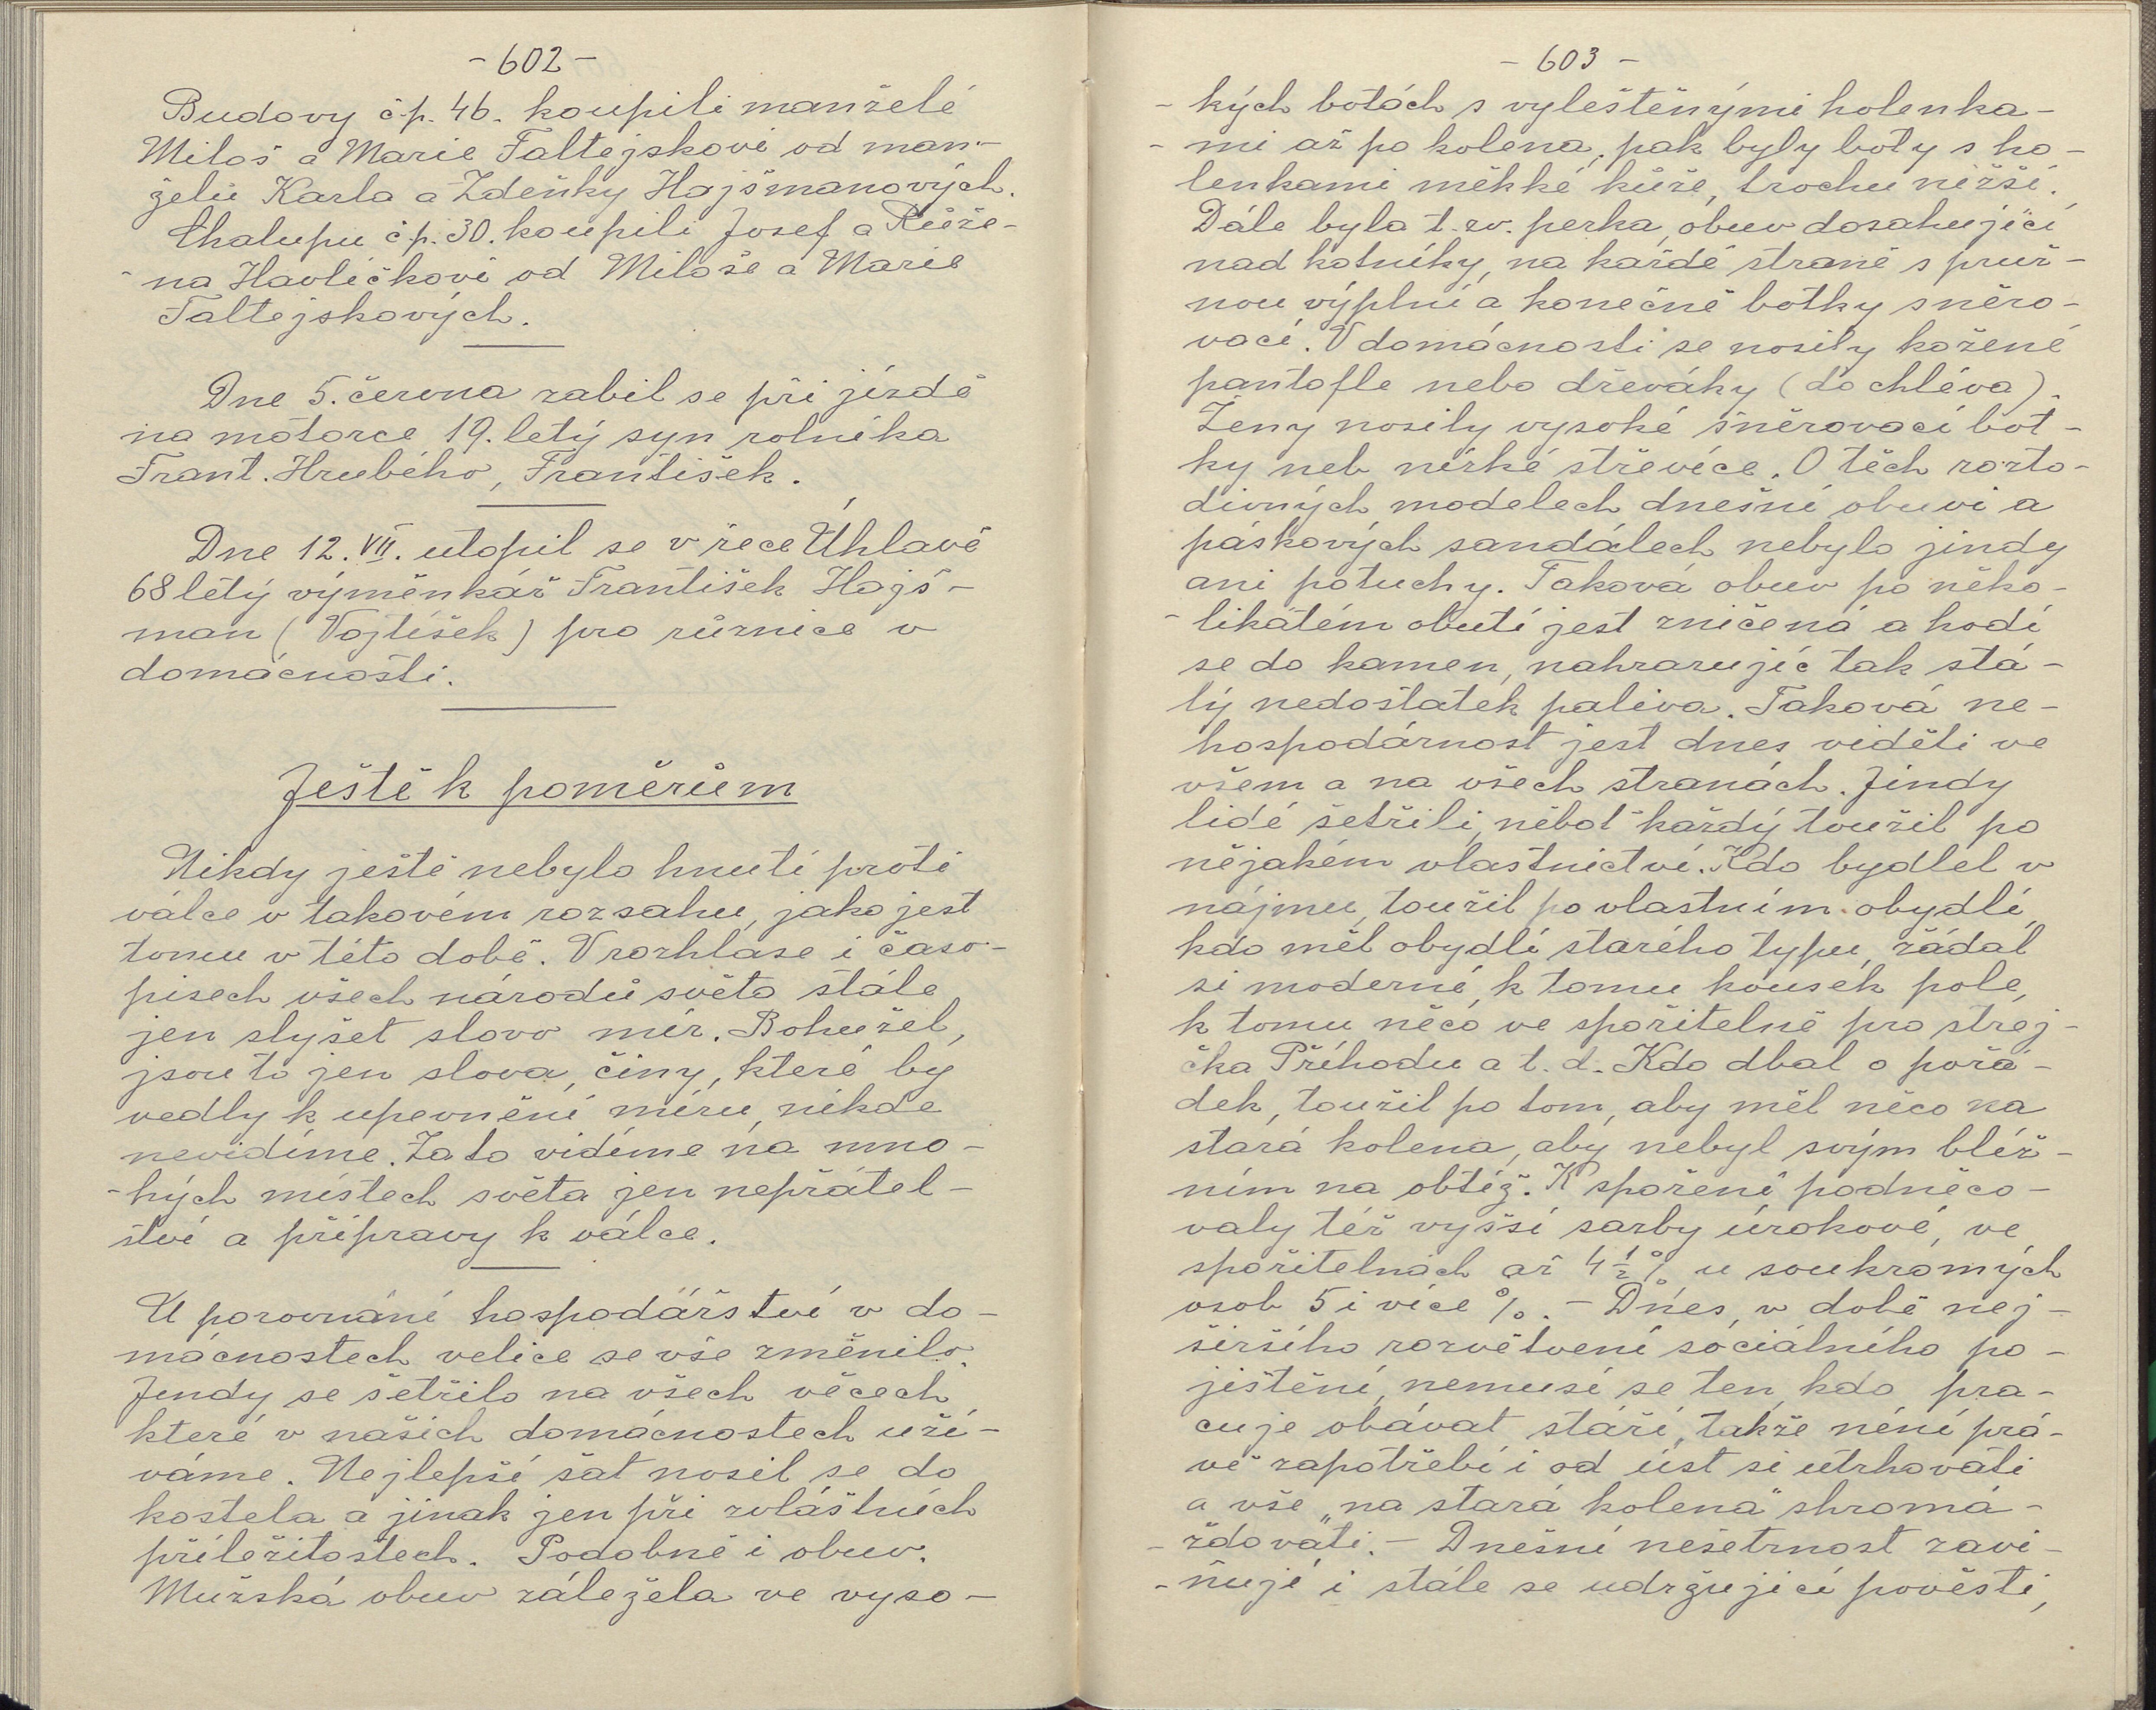 - 602 -
Budovy čp. 46. koupili manželé
Miloš a Marie Faltejskovi od man-
želů Karla a Zdeňky Hajšmanových.
Chalupu čp. 30. koupili Josef a Růže-
na Havlíčkovi od Miloše a Marie
Faltejskových.
Dne 5. června zabil se při jízdě
na motorce 19. letý syn rolníka
Frant. Hrubého, František.
Dne 12. VII. utopil se v řece Úhlavě
68 letý výměnkář František Hajš-
man (Vojtíšek) pro různice v
domácnosti.
Ještě k poměrům
Nikdy ještě nebylo hnutí proti
válce v takovém rozsahu, jako jest
tomu v této době. V rozhlase i časo-
pisech všech národů světa stále
jen slyšet slovo mír. Bohužel,
jsou to jen slova, činy, které by
vedly k upevnění míru, nikde
nevidíme. Za to vidíme na mno-
-hých místech světa jen nepřátel-
ství a přípravy k válce.
U porovnání hospodářství v do-
mácnostech velice se vše změnilo.
Jindy se šetřilo na všech věcech,
které v našich domácnostech uží-
váme. Nejlepší šat nosil se do
kostela a jinak jen při zvláštních
příležitostech. Podobně i obuv.
Mužská obuv záležela ve vyso-
- 603 -
- kých botách s vyleštěnými holenka-
- mi až po kolena, pak byly boty s ho-
lenkami měkké kůže, trochu nižší.
Dále byla t. zv. perka, obuv dosahující
nad kotníky, na každé straně s pruž-
nou výplní a konečně botky sněro-
vací. V domácnosti se nosily kožené
pantofle nebo dřeváky (do chléva).
Ženy nosily vysoké šněrovací bot-
ky neb nízké střevíce. O těch rozto-
divných modelech dnešní obuvi a
páskových sandálech nebylo jindy
ani potuchy. Taková obuv po něko-
- likátém obutí jest zničená a hodí
se do kamen, nahrazujíc tak stá-
lý nedostatek paliva. Taková ne-
hospodárnost jest dnes viděti ve
všem a na všech stranách. Jindy
lidé šetřili, něboť každý toužil po
nějakém vlastnictví. Kdo bydlel v
nájmu, toužil po vlastním obydlí,
kdo měl obydlí starého typu, žádal
si moderní, k tomu kousek pole,
k tomu něco ve spořitelně pro strej-
čka Příhodu a t. d. Kdo dbal o pořá-
dek, toužil po tom, aby měl něco na
stará kolena, aby nebyl svým bliž-
ním na obtíž. K spoření podněco-
valy též vyšší sazby úrokové, ve
spořitelnách až 4 ½ % u soukromých
osob 5 i více %. - Dnes, v době nej-
širšího rozvětvení sociálního po-
jištění, nemusí se ten, kdo pra-
cuje obávat stáří, takže není prá-
vě zapotřebí i od úst si utrhovati
a vše „na stará kolena" shromá-
- žďovati. - Dnešní nešetrnost zavi-
- ňují i stále se udržující pověsti,